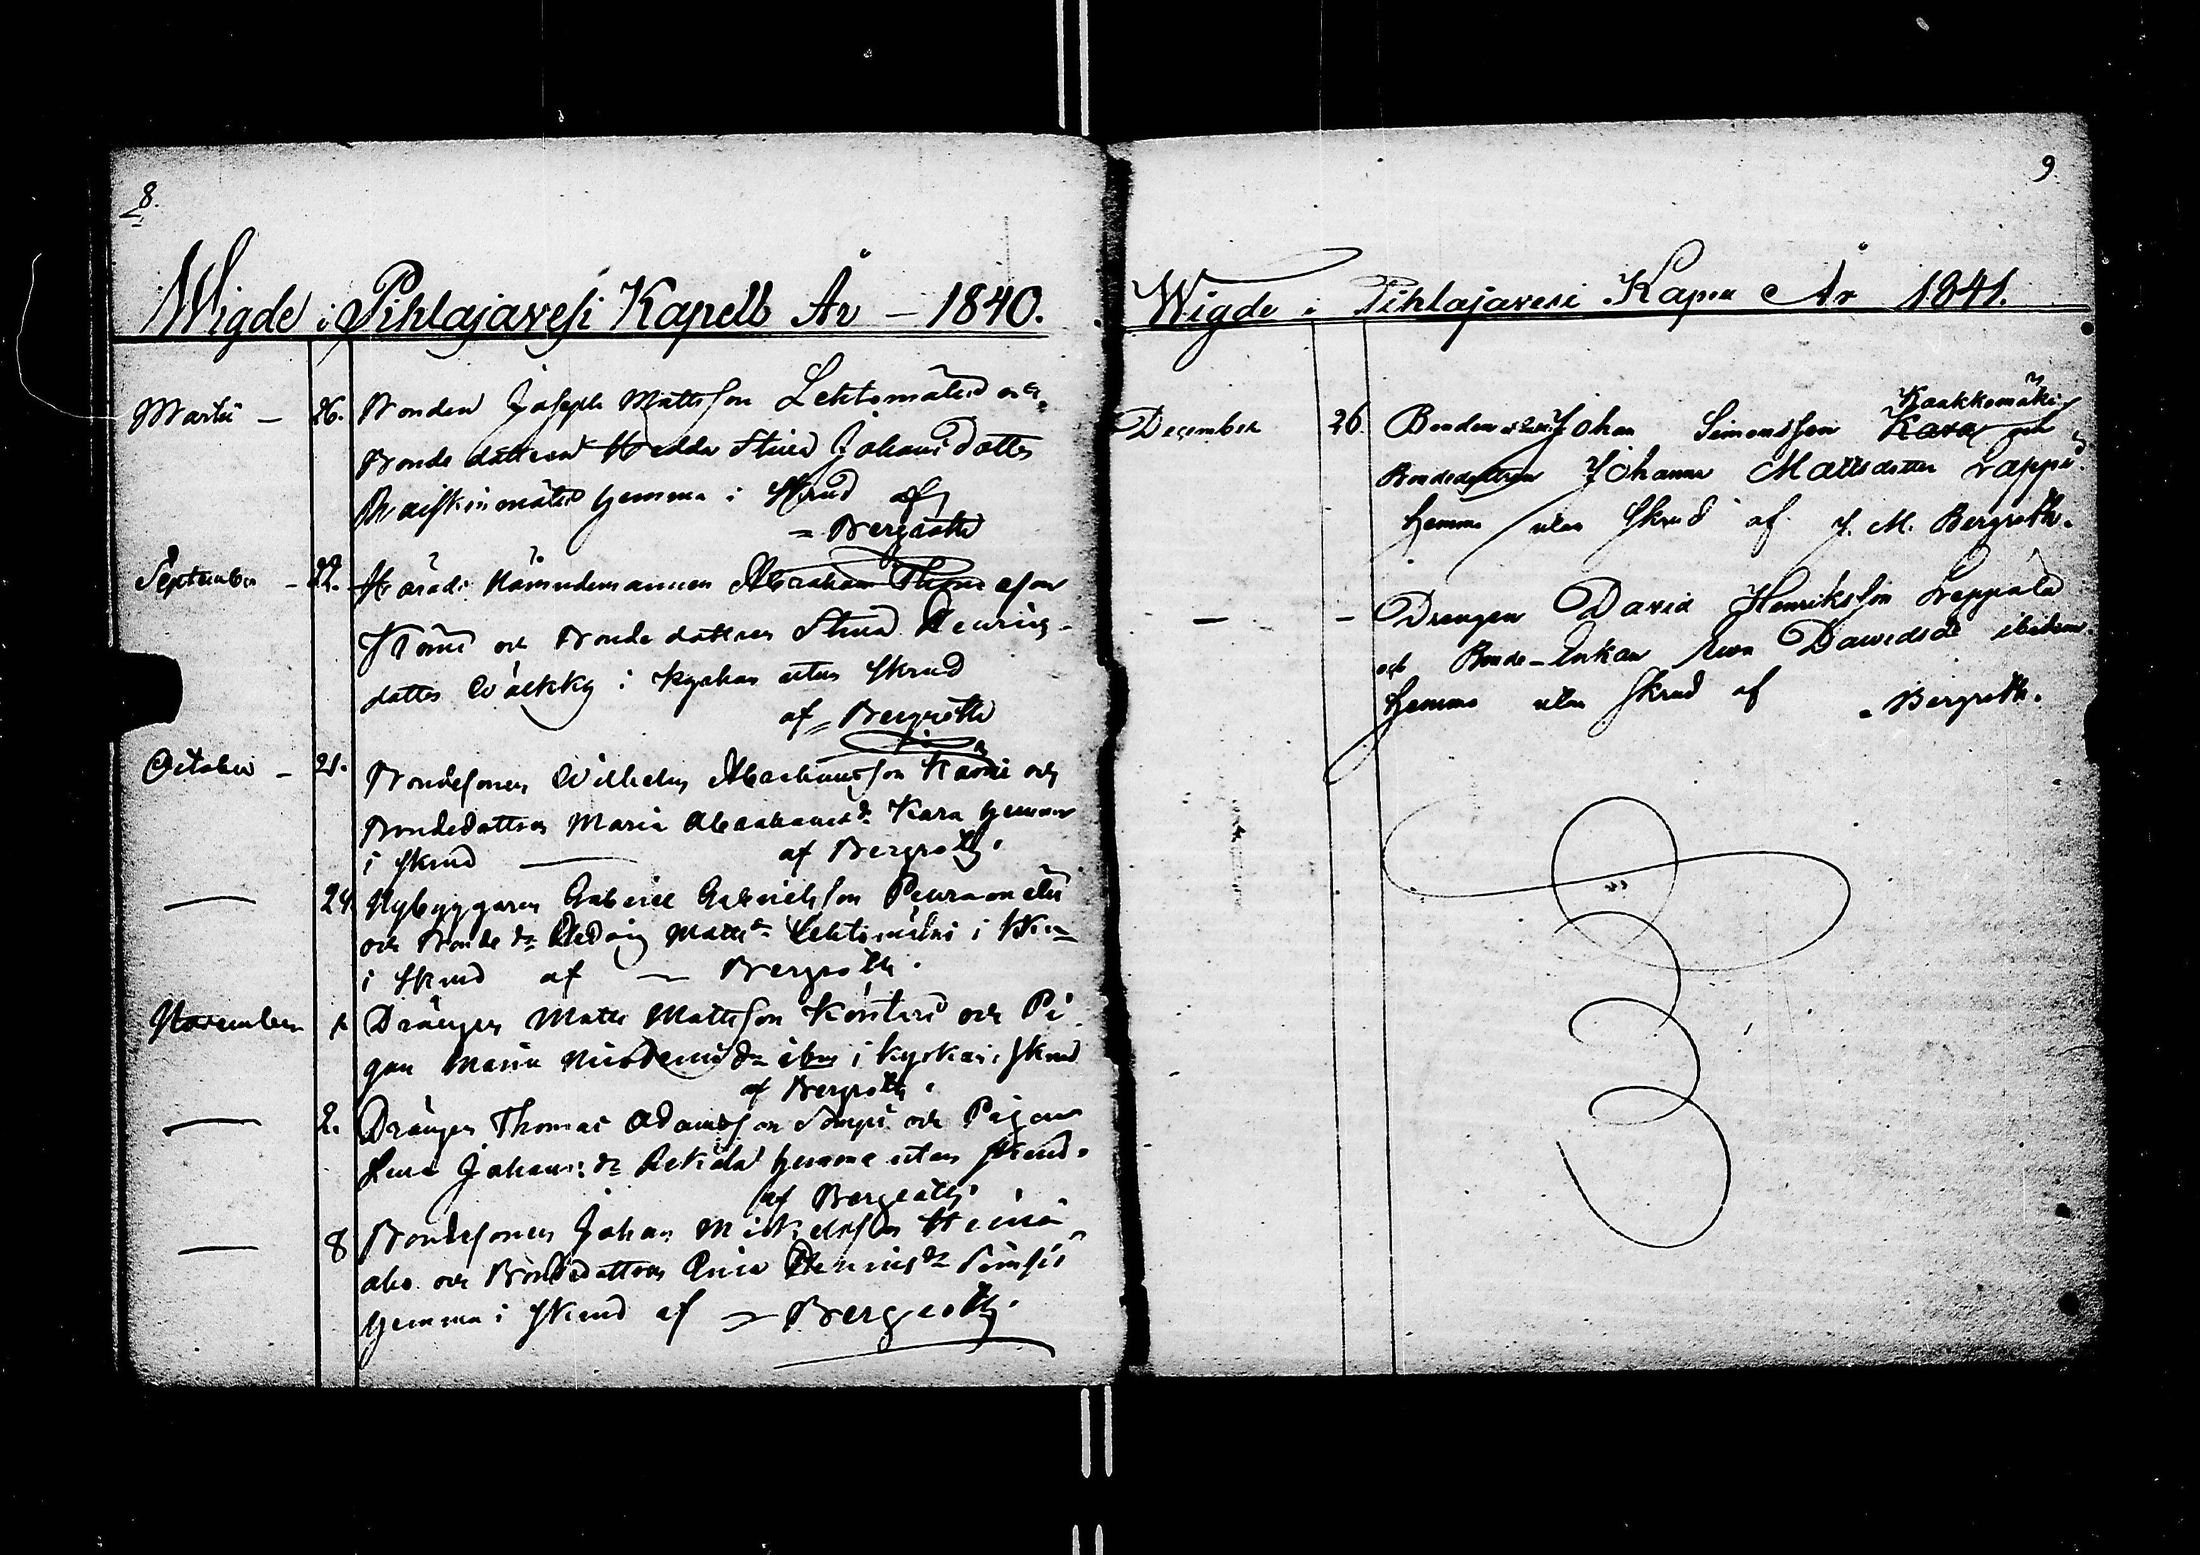 8.
Wigde i Pihlajavesi Kapell År – 1840.
Martii – 26. Bonden Joseph Mattsson Lehtomäki och
Bondedottren Hedda Stina Johansdotter
hemma i Skrud af
= Bergroth
September – 22. Härads Nämndemannen Abraham Thomasson
och Bonde dottren Stina Henrics-
dotter Wälkky i kyrkan utan skrud
af = Bergroth
October – 21. Bondesonen Wilhelm Abrahamsson och
Bondedottren Maria Abrahamsdr Kara hemma
i skrud — af Bergroth.
— 24 Nybyggaren Gabriel Gabrielsson
och Bonde dr Hedvig Mattsdr Lehtomäki i
i skrud af — Bergroth.
November 1 Drängen Matts Mattsson och Pi-
gan Maria dr i kyrkan i skrud
af Bergroth.
— 2. Drängen Thomas Adamsson och Pigan
Lena Johansdr hemma utan skrud.
af Bergroth.
— 8 Bondesonen Johan Mickelsson Heinä-
aho och Bondedottren
hemma i skrud af — Bergroth.
9.
Wigde i Pihlajavesi Kapell År 1841.
Kaakkomäki
December 26. Bonden Johan Simonsson Kara och
Bondedottren Johanna Mattsdotter Lappi
hemma utan skrud af J. M. Bergroth.
— – Drengen David Henriksson Leppälä
och Bonde-Enkan Davidsdr ibidem
hemma utan skrud af Bergroth.